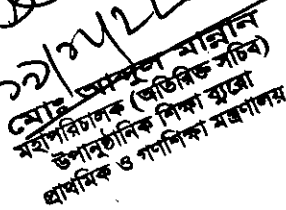 মোঃ আব্দুল মান্নান
মহাপরিচালক (অতিরিক্ত সচিব)
উপানুষ্ঠানিক শিক্ষা ব্যুরো
প্রাথমিক ও গণশিক্ষা মন্ত্রণালয়